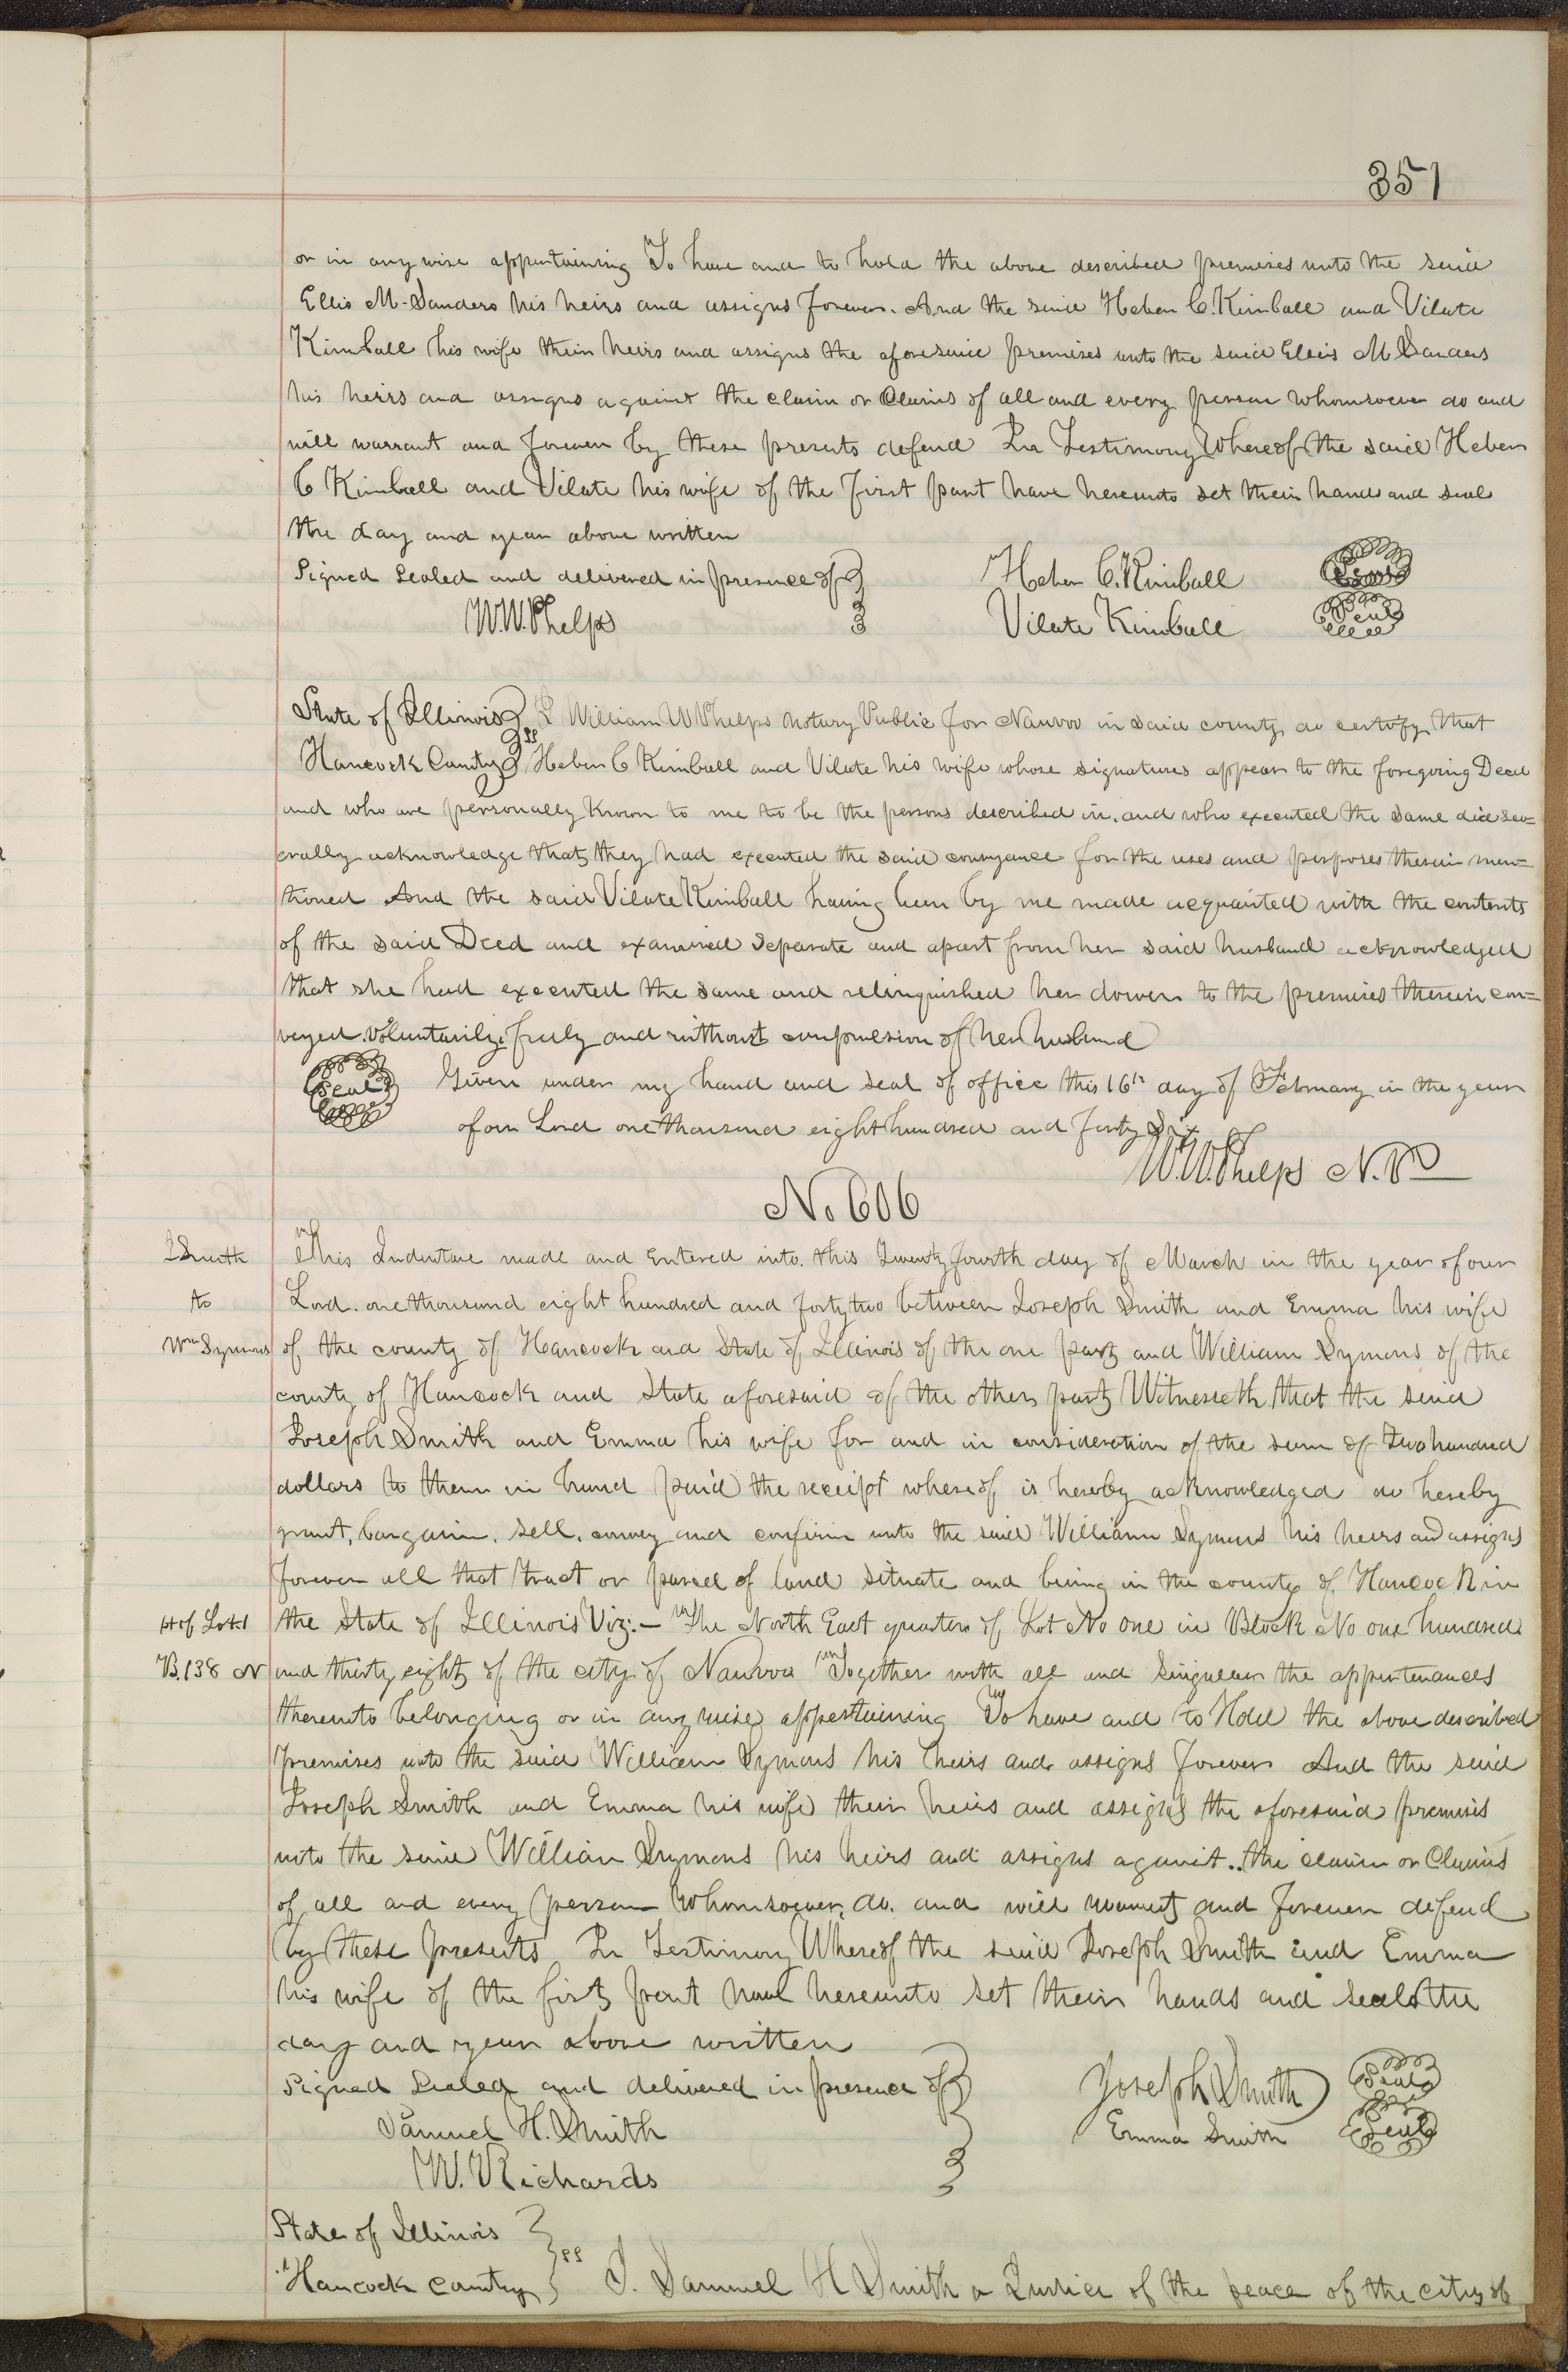 351
or in any wise appertaining To have and to hold the above described premises unto the said
Ellis M. Sanders his heirs and assigns forever. And the said Heber C. Kimball and Vilate
Kimball his wife their heirs and assigns the aforesaid premises unto the said Ellis M Sanders
his heirs and assigns against the claim or Claims of all and every person whomsoever do and
will warrant and forever by these presents defend In Testimony Whereof the said Heber
C Kimball and Vilate his wife of the first part have hereunto set their hands and seal
the day and year above written
Signed Sealed and delivered in presence of Heber C. Kimball Seal
W. W. Phelps Vilate Kimball Seal
State of Illinois I William W Phelps Notary Public for Nauvoo in said county do certify that
Hancock County ss Heber C Kimball and Vilate his wife whose signatures appear to the foregoing Deed
and who are personally known to me to be the persons described in, and who executed the same did sev=
erally acknowledge that they had executed the said conveyance for the uses and purposes therein men=
tioned And the said Vilate Kimball having been by me made acquainted with the contents
of the said Deed and examined separate and apart from her said husband acknowledged
that she had executed the same and relinquished her dower to the premises therein con=
veyed voluntarily, freely and without compulsion of her husband
Seal Given under my hand and seal of office this 16th day of February in the year
of our Lord one thousand eight hundred and forty Six
W. W. Phelps N. P
No 606
J Smith This Indenture made and entered into this Twenty fourth day of March in the year of our
to Lord. one thousand eight hundred and forty two between Joseph Smith and Emma his wife
Wm Symons of the county of Hancock and State of Illinois of the one party and William Symons of the
county of Hancock and State aforesaid of the other party Witnesseth, that the said
Joseph Smith and Emma his wife for and in consideration of the sum of Two hundred
dollars to them in hand paid the receipt whereof is hereby acknowledged do hereby
grant, bargain, sell, convey and confirm unto the said William Symons his heirs and assigns
forever all that tract or parcel of land situate and being in the county of Hancock in
pt of Lot 1 the State of Illinois Viz:— The North East quarter of Lot No one in Block No one hundred
B. 138 N and thirty eight of the city of Nauvoo Together with all and singular the appertenances
thereunto belonging or in any wise appertaining To have and to Hold the above described
premises unto the said William Symons his heirs and assigns forever And the said
Joseph Smith and Emma his wife their heirs and assigns the aforesaid premises
unto the said William Symons his heirs and assigns against.. the claim or Claims
of all and every person whomsoever, do. and will warrant and forever defend
by these presents In Testimony Whereof the said Joseph Smith and Emma
his wife of the first part have hereunto set their hands and seals the
day and year above written
Signed Sealed and delivered in presence of Joseph Smith Seal
Samuel H. Smith Emma Smith Seal
W. Richards
State of Illinois
Hancock County ss I. Samuel H Smith a Justice of the peace of the city of